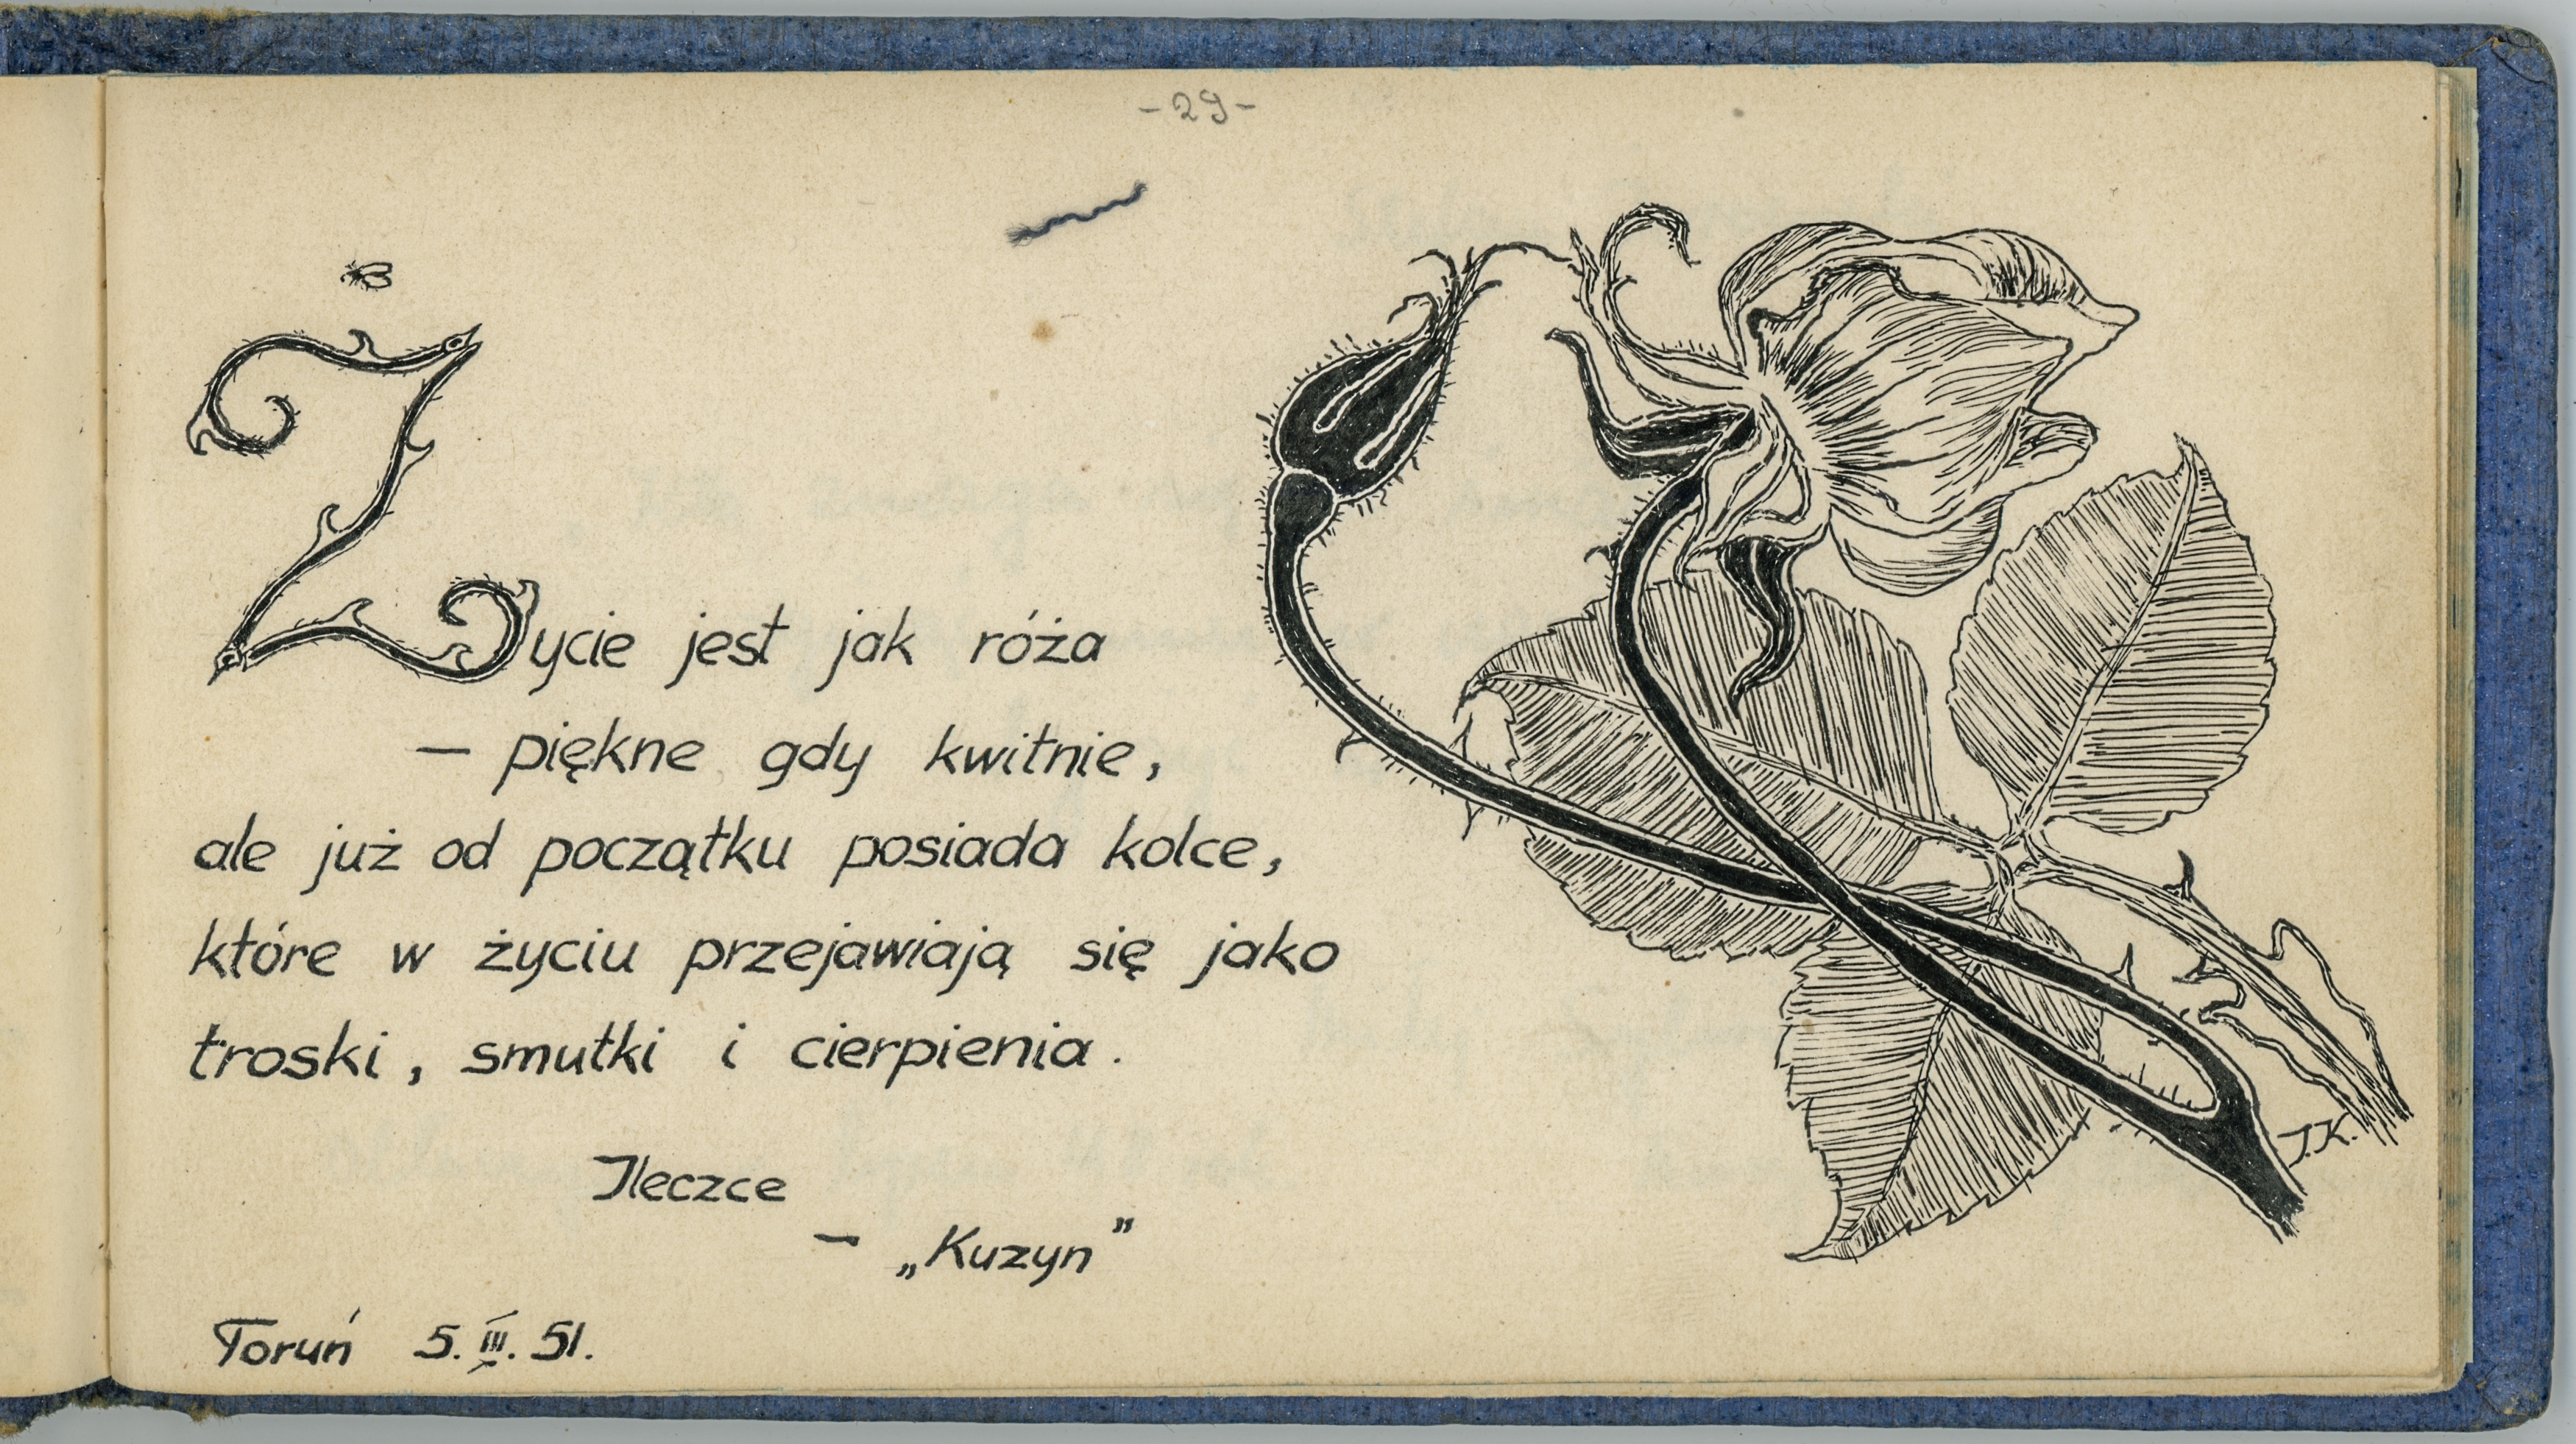 -29-
Życie jest jak róża
— piękne gdy kwitnie,
ale już od początku posiada kolce,
które w życiu przejawiają się jako
troski, smutki i cierpienia.
Ileczce
— „Kuzyn”
Toruń 5.III.51.
J.K.